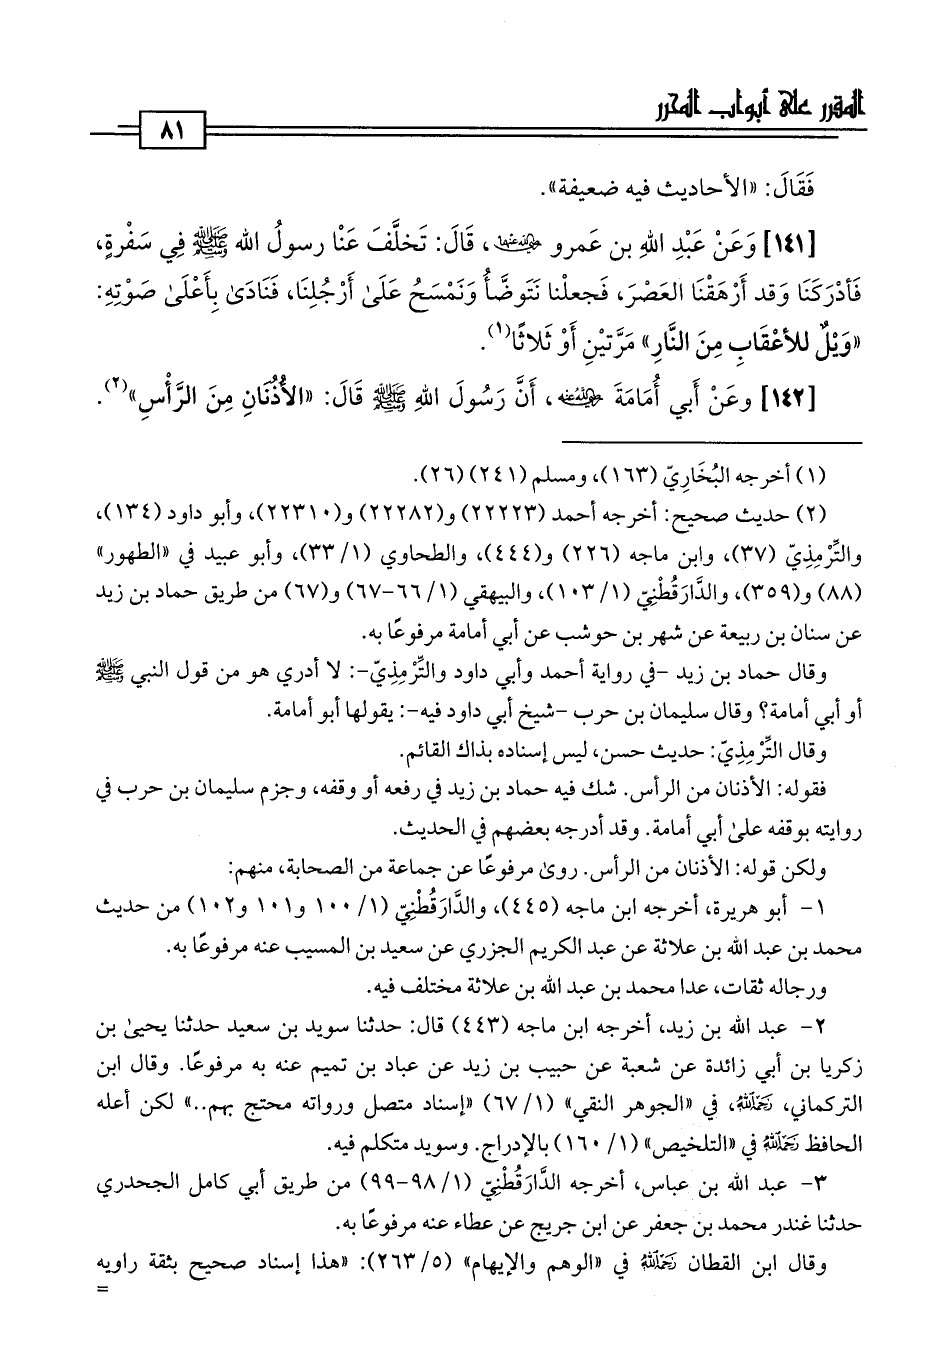 المقرر على أبواب المحرر
٨١
فَقَالَ: «الأحاديث فيه ضعيفة».
[١٤١] وَعَنْ عَبْدِ اللهِ بن عَمرو رضي الله عنهما، قَالَ: تَخلَّفَ عَنْا رسولُ الله ﷺ فِي سَفْرةٍ،
فَأدْرَكَنَا وَقد أَرْهَقْنَا العَصْرَ، فَجعلْنا نَتَوضَّأُ وَنَمْسَحُ عَلَىٰ أَرْجُلِنَا، فَنَادَىٰ بِأَعْلَىٰ صَوْتِهِ:
«وَيْلٌ للأعْقَابِ مِنَ النَّارِ» مَرَّتَيْنِ أَوْ ثَلاثًا(١).
[١٤٢] وعَنْ أَبي أُمَامَةَ رضي الله عنه، أَنَّ رَسُولَ اللهِ ﷺ قَالَ: «الأُذُنَانِ مِنَ الرَّأْسِ»(٢).
(١) أخرجه البُخَارِيّ (١٦٣)، ومسلم (٢٤١) (٢٦).
(٢) حديث صحيح: أخرجه أحمد (٢٢٢٢٣) و(٢٢٢٨٢) و(٢٢٣١٠)، وأبو داود (١٣٤)،
والتِّرْمِذِيّ (٣٧)، وابن ماجه (٢٢٦) و(٤٤٤)، والطحاوي (١/ ٣٣)، وأبو عبيد في «الطهور»
(٨٨) و(٣٥٩)، والدَّارَقُطْنِيّ (١/ ١٠٣)، والبيهقي (١/ ٦٦-٦٧) و(٦٧) من طريق حماد بن زيد
عن سنان بن ربيعة عن شهر بن حوشب عن أبي أمامة مرفوعًا به.
وقال حماد بن زيد -في رواية أحمد وأبي داود والتِّرْمِذِيّ-: لا أدري هو من قول النبي ﷺ
أو أبي أمامة؟ وقال سليمان بن حرب -شيخ أبي داود فيه-: يقولها أبو أمامة.
وقال التِّرْمِذِيّ: حديث حسن، ليس إسناده بذاك القائم.
فقوله: الأذنان من الرأس. شك فيه حماد بن زيد في رفعه أو وقفه، وجزم سليمان بن حرب في
روايته بوقفه علىٰ أبي أمامة. وقد أدرجه بعضهم في الحديث.
ولكن قوله: الأذنان من الرأس. روىٰ مرفوعًا عن جماعة من الصحابة، منهم:
١- أبو هريرة، أخرجه ابن ماجه (٤٤٥)، والدَّارَقُطْنِيّ (١/ ١٠٠ و١٠١ و١٠٢) من حديث
محمد بن عبد الله بن علاثة عن عبد الكريم الجزري عن سعيد بن المسيب عنه مرفوعًا به.
ورجاله ثقات، عدا محمد بن عبد الله بن علاثة مختلف فيه.
٢- عبد الله بن زيد، أخرجه ابن ماجه (٤٤٣) قال: حدثنا سويد بن سعيد حدثنا يحيىٰ بن
زكريا بن أبي زائدة عن شعبة عن حبيب بن زيد عن عباد بن تميم عنه به مرفوعًا. وقال ابن
التركماني، رحمه الله، في «الجوهر النقي» (١/ ٦٧) «إسناد متصل ورواته محتج بهم..» لكن أعله
الحافظ رحمه الله في «التلخيص» (١/ ١٦٠) بالإدراج. وسويد متكلم فيه.
٣- عبد الله بن عباس، أخرجه الدَّارَقُطْنِيّ (١/ ٩٨-٩٩) من طريق أبي كامل الجحدري
حدثنا غندر محمد بن جعفر عن ابن جريج عن عطاء عنه مرفوعًا به.
وقال ابن القطان رحمه الله في «الوهم والإيهام» (٥/ ٢٦٣): «هذا إسناد صحيح بثقة راويه
=